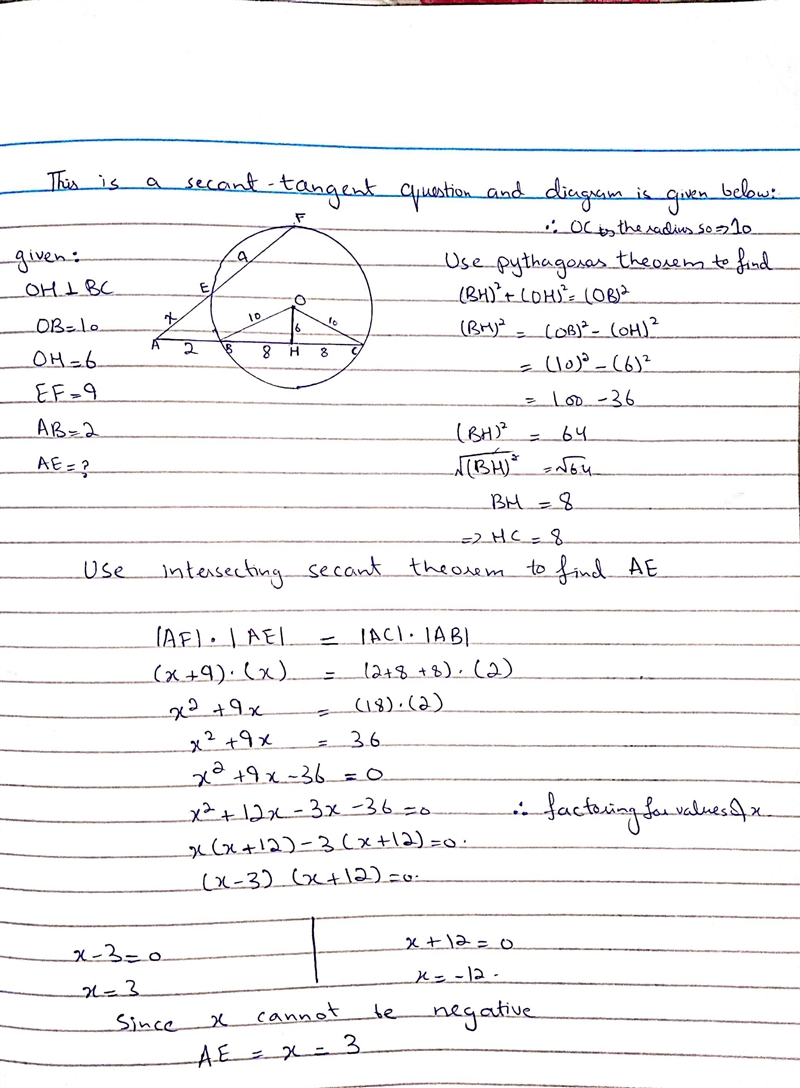 This is a secant-tangent question and diagram is given below:
∴ OC is the radius so => 10
given:
OH ⊥ BC
OB = 10
OH = 6
EF = 9
AB = 2
AE = ?
F
9
E
x
O
10
10
6
A
2
B
8
H
8
C
Use pythagoras theorem to find
(BH)² + (OH)² = (OB)²
(BH)² = (OB)² - (OH)²
= (10)² - (6)²
= 100 - 36
(BH)² = 64
√(BH)² = √64
BH = 8
=> HC = 8
Use intersecting secant theorem to find AE
|AF| . |AE| = |AC| . |AB|
(x+9) . (x) = (2+8+8) . (2)
x² + 9x = (18) . (2)
x² + 9x = 36
x² + 9x - 36 = 0
x² + 12x - 3x - 36 = 0 ∴ factoring for values of x.
x(x+12) - 3(x+12) = 0.
(x-3) (x+12) = 0.
x - 3 = 0
x = 3
x + 12 = 0
x = -12.
Since x cannot be negative
AE = x = 3